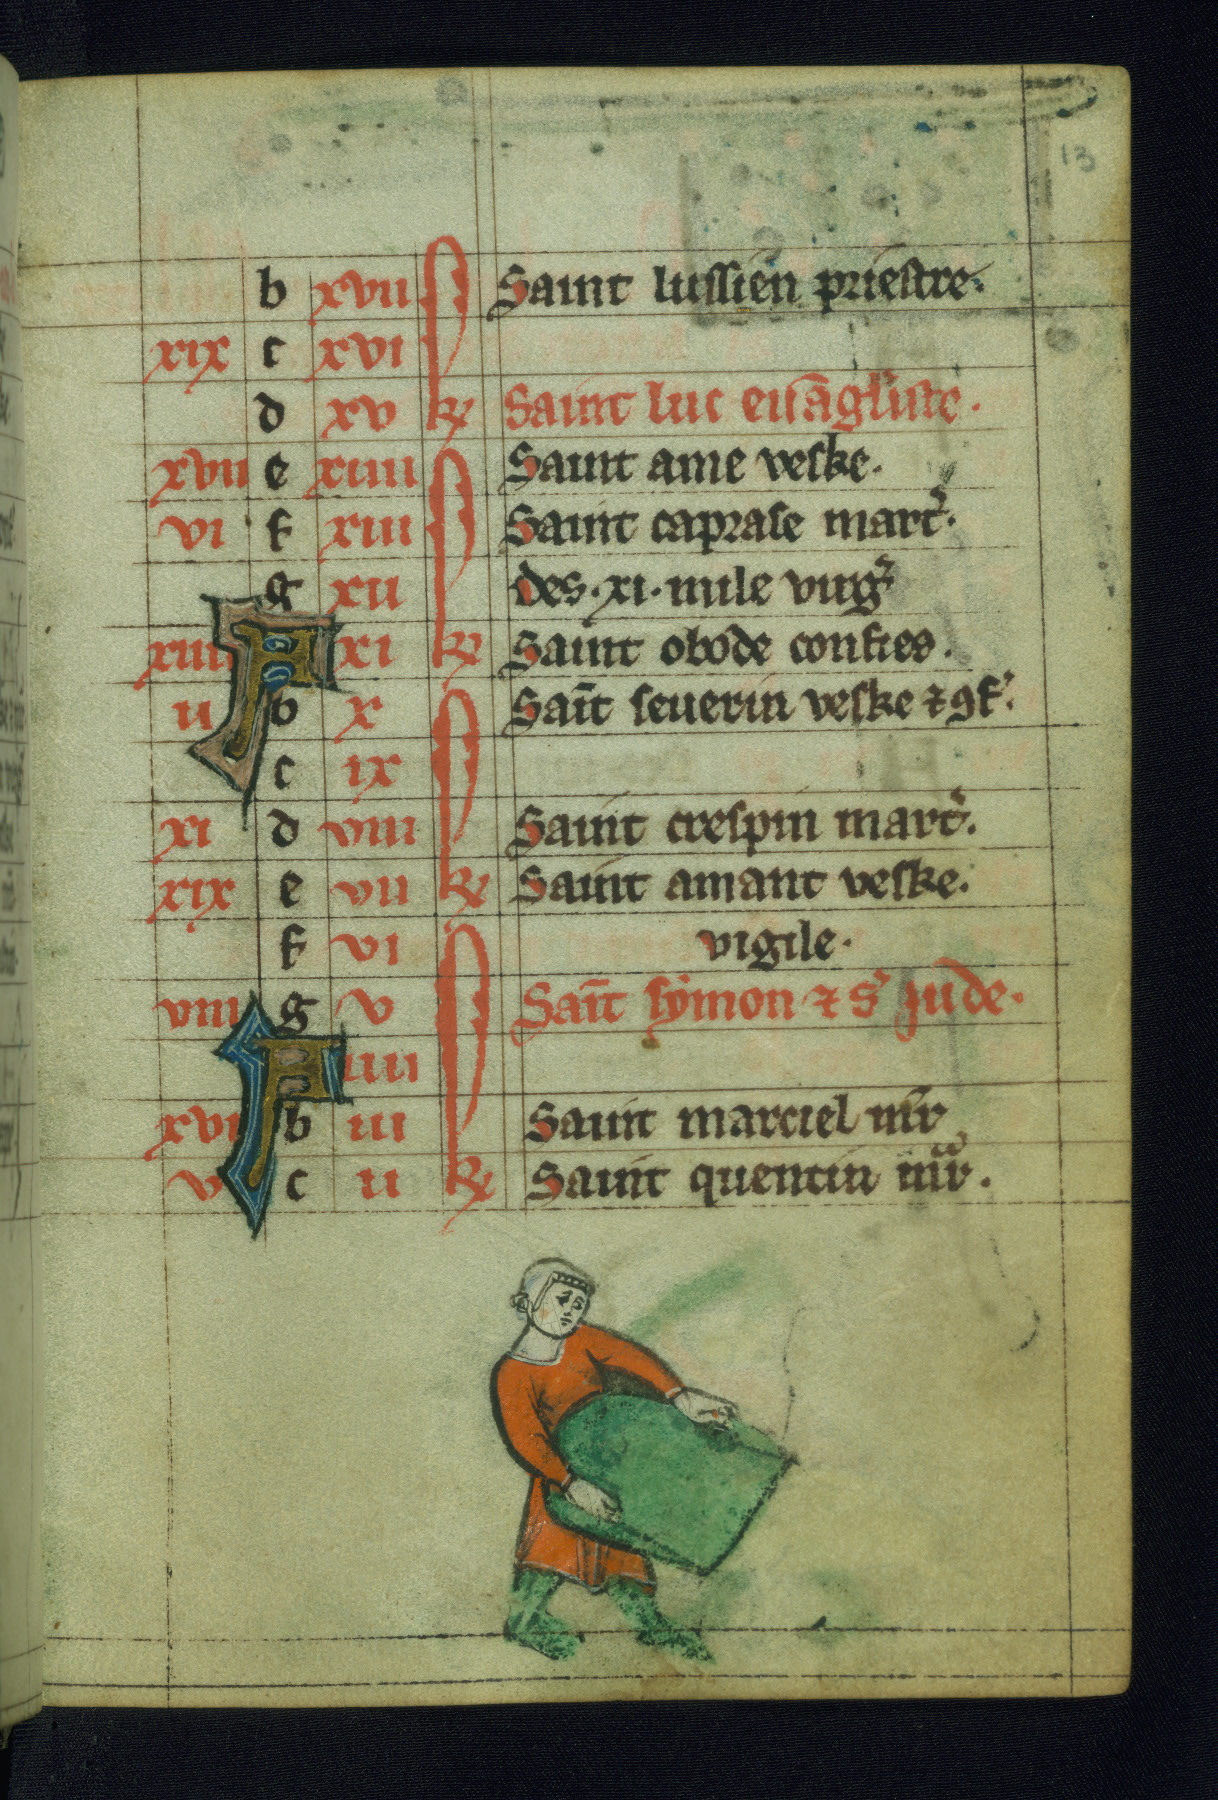 13
b xvii Saint lussien priestre.
xix c xvi
d xv kł Saint luc euāgliste.
xvii e xiiii Saint ame veske.
vi f xiii Saint caprase mart.
g xii des .xi. mile virg
xiiii A xi kł Saint obode confies.
ii b x Sait seuerin veske ⁊ 9f.
c ix
xi d viii Saint crespin mart.
xix e vii kł Saint amant veske.
f vi vigile.
viii g v Sait symon ⁊ s' jude.
A iiii
xvi b iii Saint marciel mr
v c ii kł Saint quentin mr.